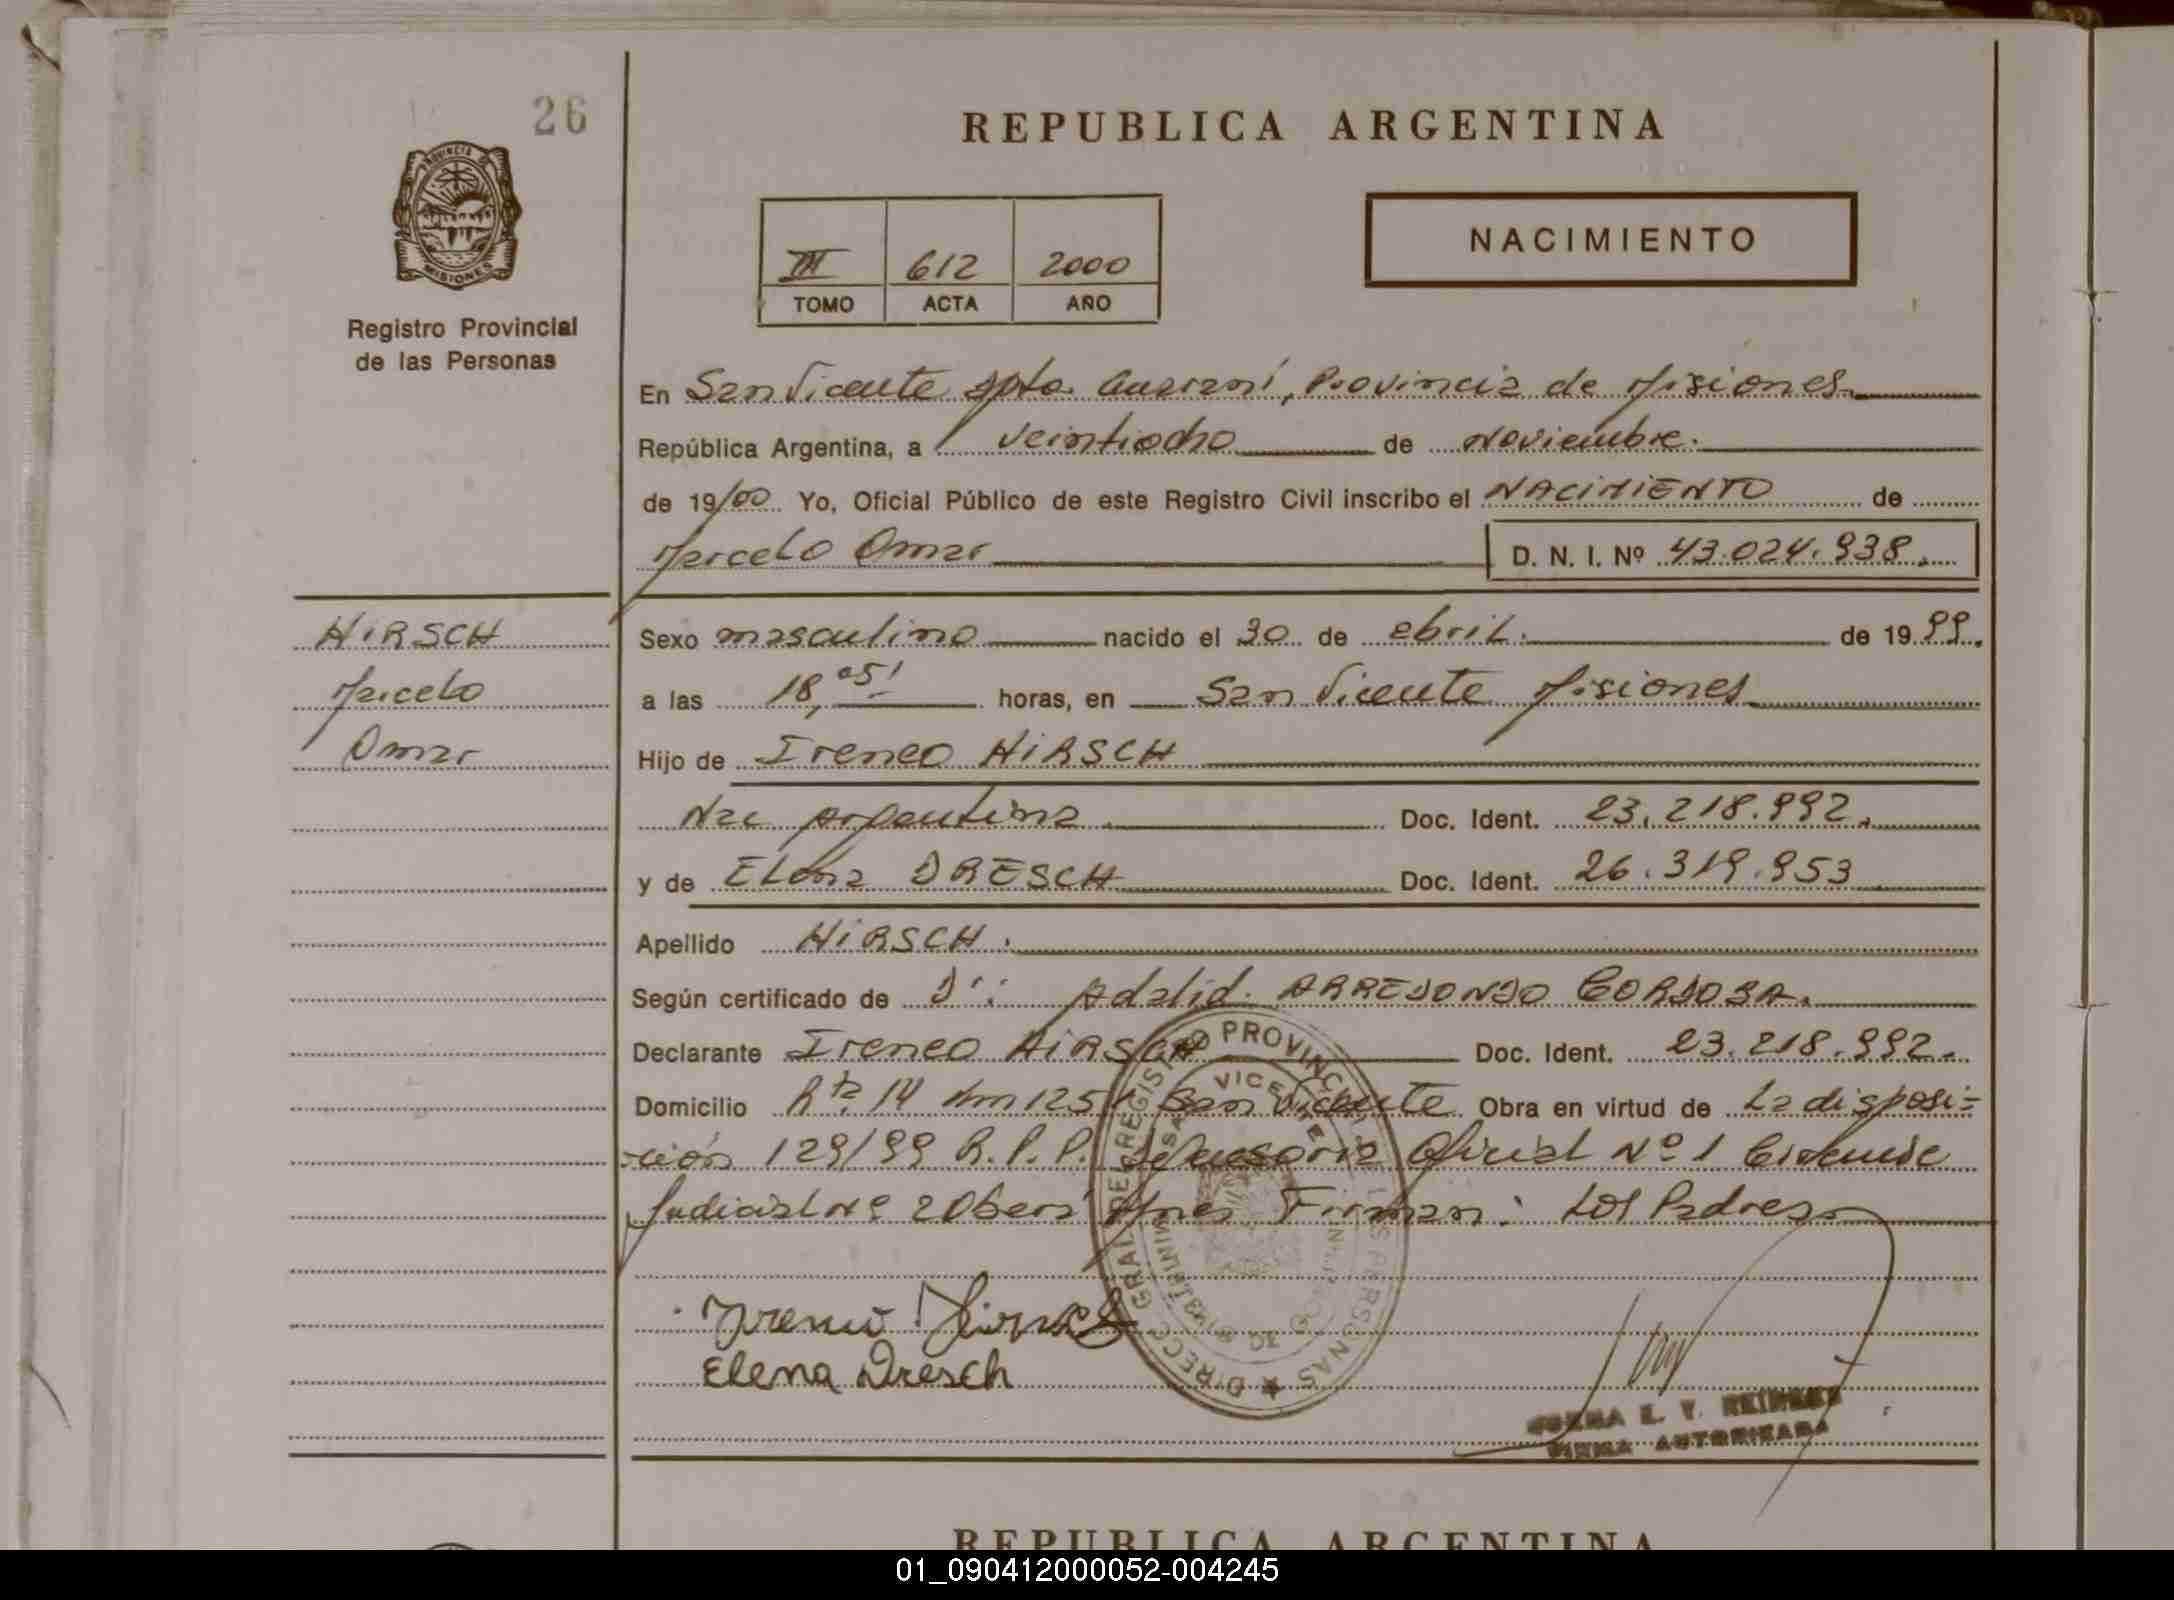 26
REPUBLICA ARGENTINA
PROVINCIA DE
MISIONES
Registro Provincial
de las Personas
III 612 2000
TOMO ACTA AÑO
NACIMIENTO
En San Vicente Dpto. Guaraní, Provincia de Misiones.
República Argentina, a veintiocho de noviembre.
de 19/00 Yo, Oficial Público de este Registro Civil inscribo el NACIMIENTO de
Marcelo Omar D. N. I. Nº 43.024.938.
HIRSCH
Marcelo
Omar
Sexo masculino nacido el 30 de abril. de 1999.
a las 18,05' horas, en San Vicente Misiones
Hijo de Ireneo HIRSCH
Nac argentina. Doc. Ident. 23.218.992.
y de Elena DRESCH Doc. Ident. 26.319.953
Apellido HIRSCH.
Según certificado de Adalid. ARREDONDO CORDOBA.
Declarante Ireneo HIRSCH Doc. Ident. 23.218.992.
Domicilio Rta. 14 Km 1251 San Vicente Obra en virtud de la disposi-
-ción 129/99 R.P.P. Defensoria Oficial Nº 1
Judicial Nº 2 Obera Mnes Firman: Los Padres
Ireneo Hirsch
Elena Dresch
DIREC. GRAL. DEL REGISTRO PROVINCIAL DE LAS PERSONAS
SAN VICENTE
E. Y.
FIRMA AUTORIZADA
REPUBLICA ARGENTINA
01_090412000052-004245